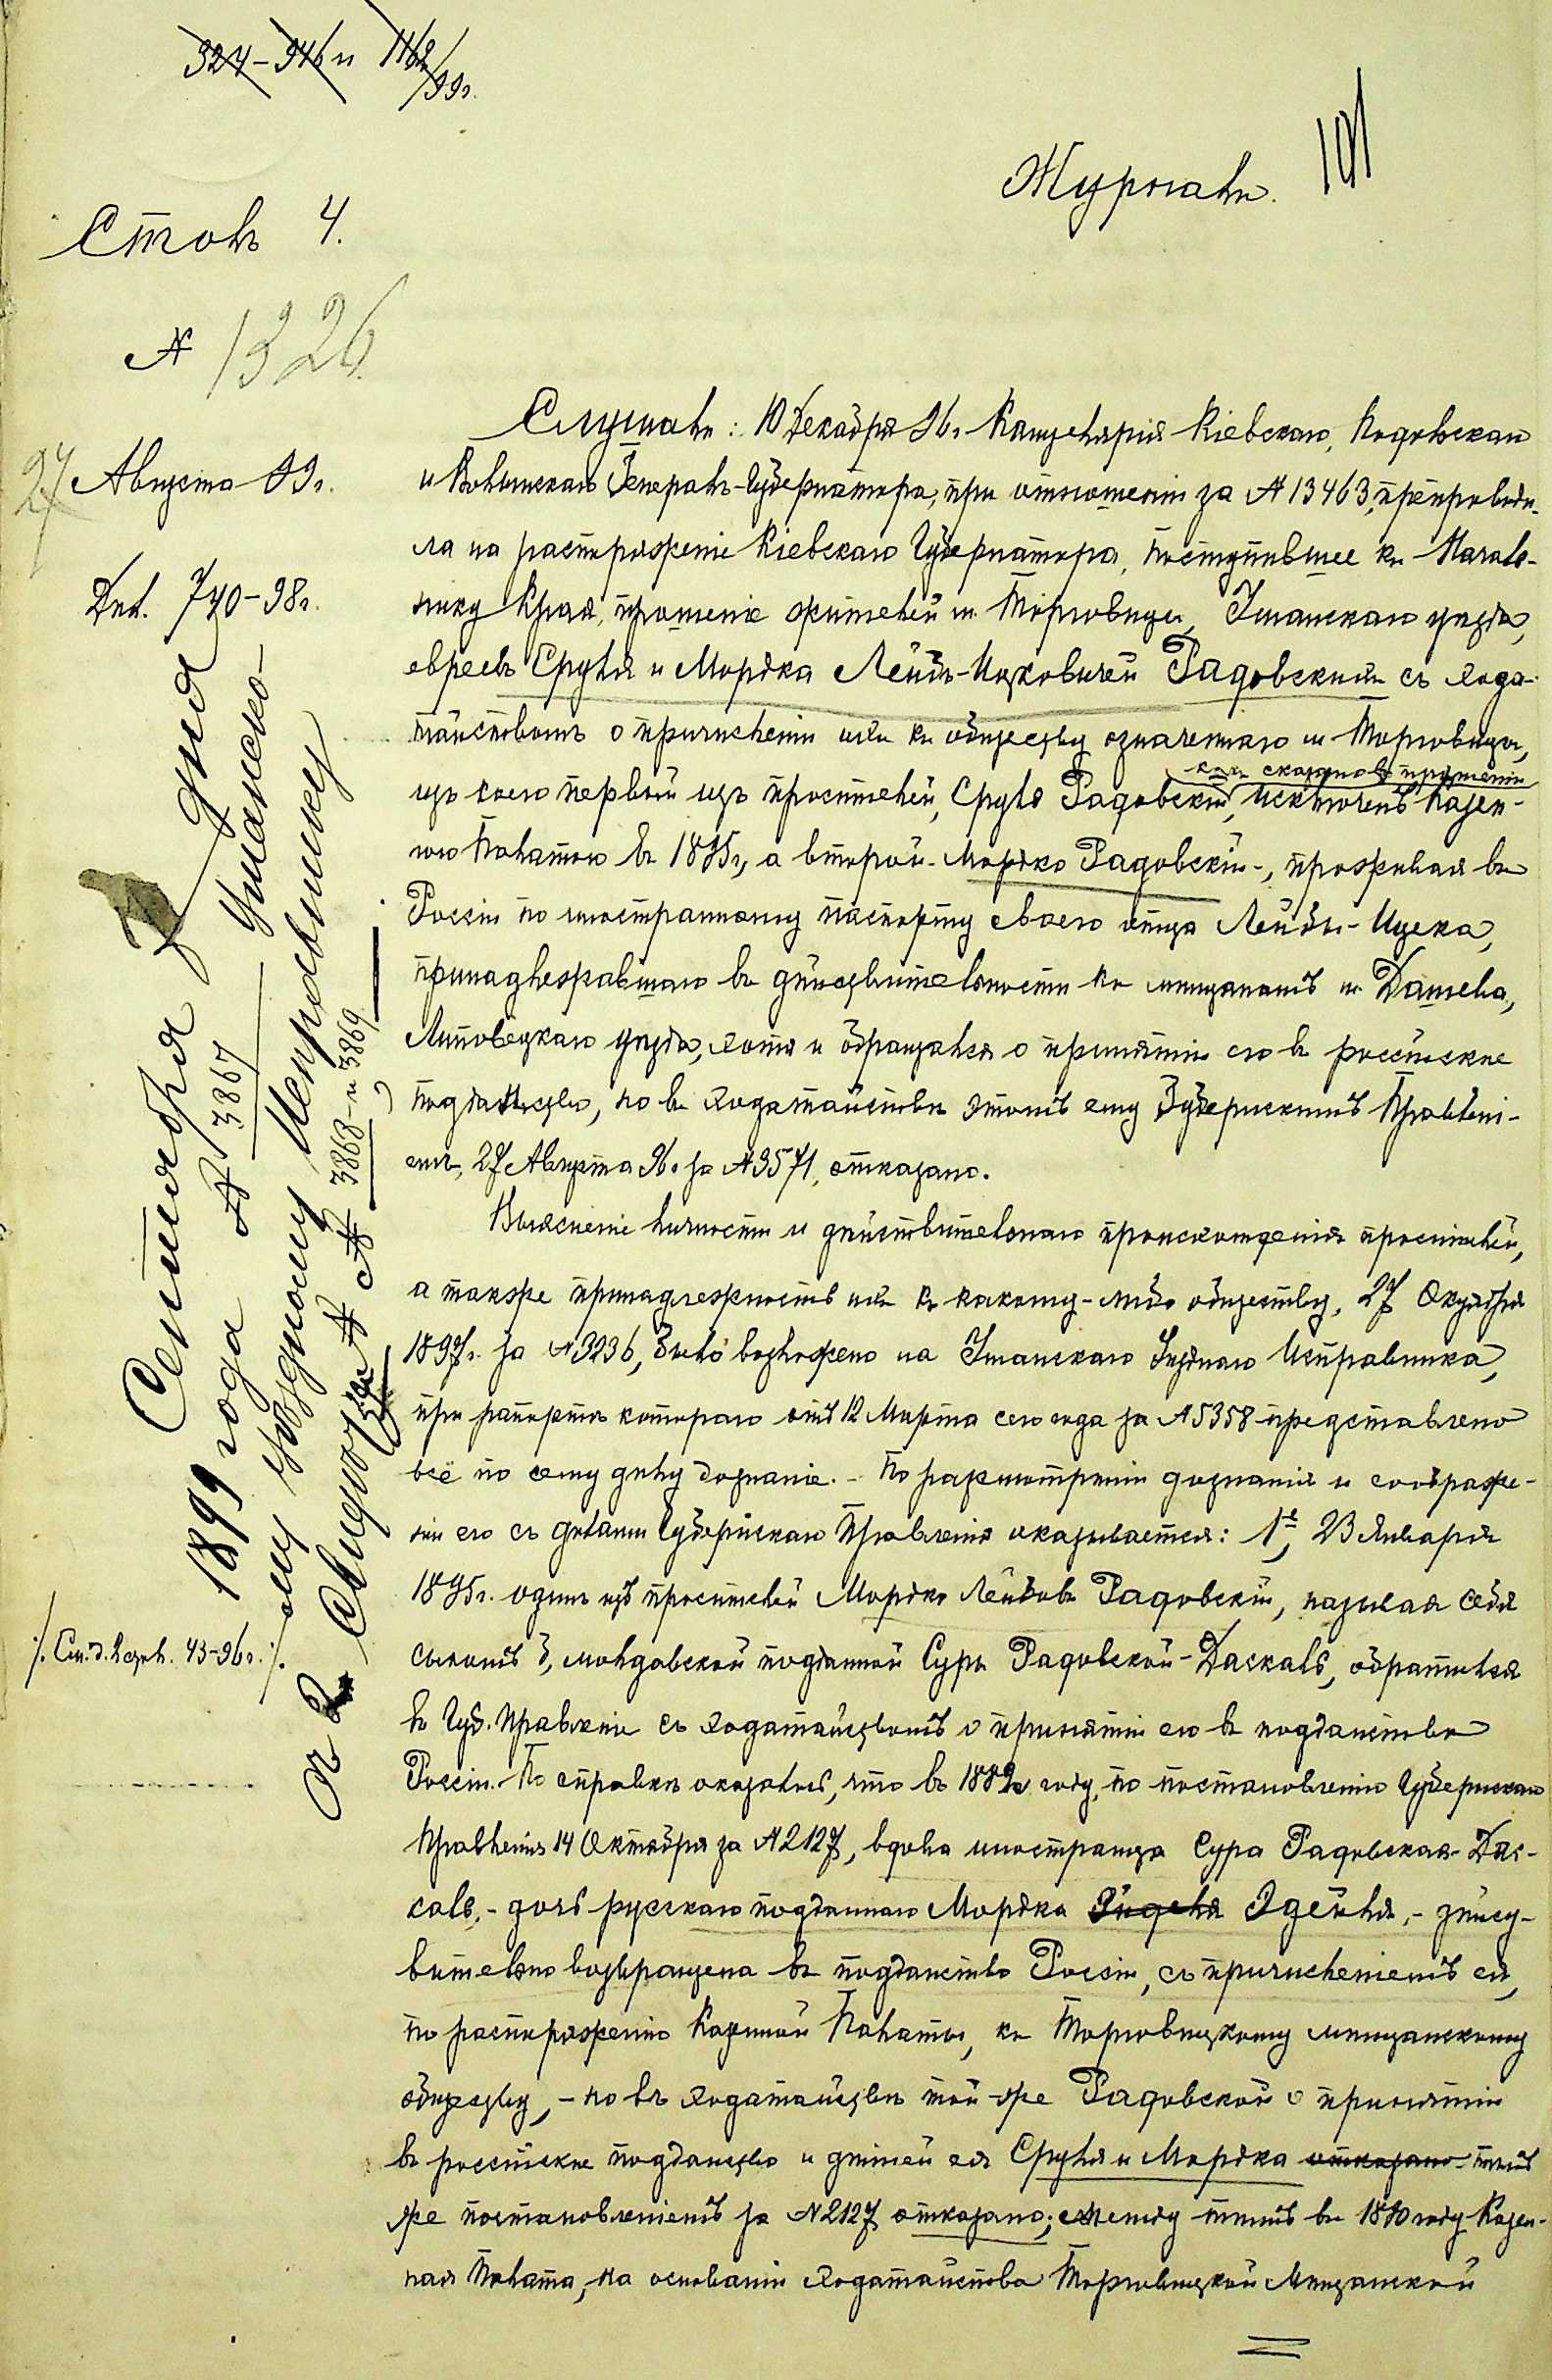 324 - 346 и 1162/99г.
Журналъ.
101
Столъ 4.
№ 1326
27 Августа 99г.
Дѣл. 740-98г.
Слушали: 10 Декабря 96г. Канцелярія Кіевскаго, Подольскаго
и Волынскаго Генералъ-Губернатора, при отношеніи за № 13463, препроводи-
ла на распоряженіе Кіевскаго Губернатора, поступившее къ Началь-
нику Края, прошеніе жителей м. Торговицы, Уманскаго уѣзда,
евреевъ Сруля и Мордка Лейбъ-Ицковичей Радовскихъ съ хода-
тайствомъ о причисленіи ихъ къ обществу означеннаго м. Торговицы,
какъ сказано въ прошеніи
изъ коего первый изъ просителей, Сруль Радовскій, исключенъ Казен-
ною Палатою въ 1895г., а второй - Мордко Радовскій -, проживая въ
Россіи по иностранному паспорту своего отца Лейбы-Ицека,
принадлежавшаго въ дѣйствительности къ мѣщанамъ м. Дашева,
Липовецкаго уѣзда, хотя и обращался о принятіи его въ россійское
подданство, но въ ходатайствѣ этомъ ему Губернскимъ Правлені-
емъ, 27 Августа 96г. за № 3571, отказано.
Выясненіе личности и дѣйствительнаго происхожденія просителей,
а также принадлежность ихъ къ какому-либо обществу, 27 Октября
1897г. за № 3236, было возложено на Уманскаго Уѣзднаго Исправника,
при рапортѣ котораго отъ 12 Марта сего года за № 5358 представлено
всё по сему дѣлу дознаніе. - По разсмотрѣніи дознанія и соображе-
ніи его съ дѣлами Губернскаго Правленія оказывается: 1е, 23 Января
1895г. одинъ изъ просителей Мордко Лейбовъ Радовскій, называя себя
сыномъ б, молдавской подданной Суры Радовской-Даскалъ, обратился
въ Губ. Правленіе съ ходатайствомъ о принятіи его въ подданство
Россіи. По справкѣ оказалось, что въ 1882 году, по постановленію Губернскаго
Правленія 14 Октября за № 2127, вдова иностранца Сура Радовская-Дас-
калъ, - дочь русскаго подданнаго Мордка Эйделя Эдейля, - дѣйст-
вительно возвращена въ подданство Россіи, съ причисленіемъ ея,
по распоряженію Казенной Палаты, къ Торговицкому мѣщанскому
обществу, - но въ ходатайствѣ той-же Радовской о принятіи
въ россійское подданство и дѣтей ея Сруля и Мордка отказано тѣмъ
же постановленіемъ за № 2127 отказано; между тѣмъ въ 1890 году Казен-
ная Палата, на основаніи ходатайства Торговицкой Мѣщанской
Сентября 2 дня
1899 года № 3867 Уманско-
му Уѣздному Исправнику
за №№ 3868 и 3869
/. См. д. 43-96г. /.